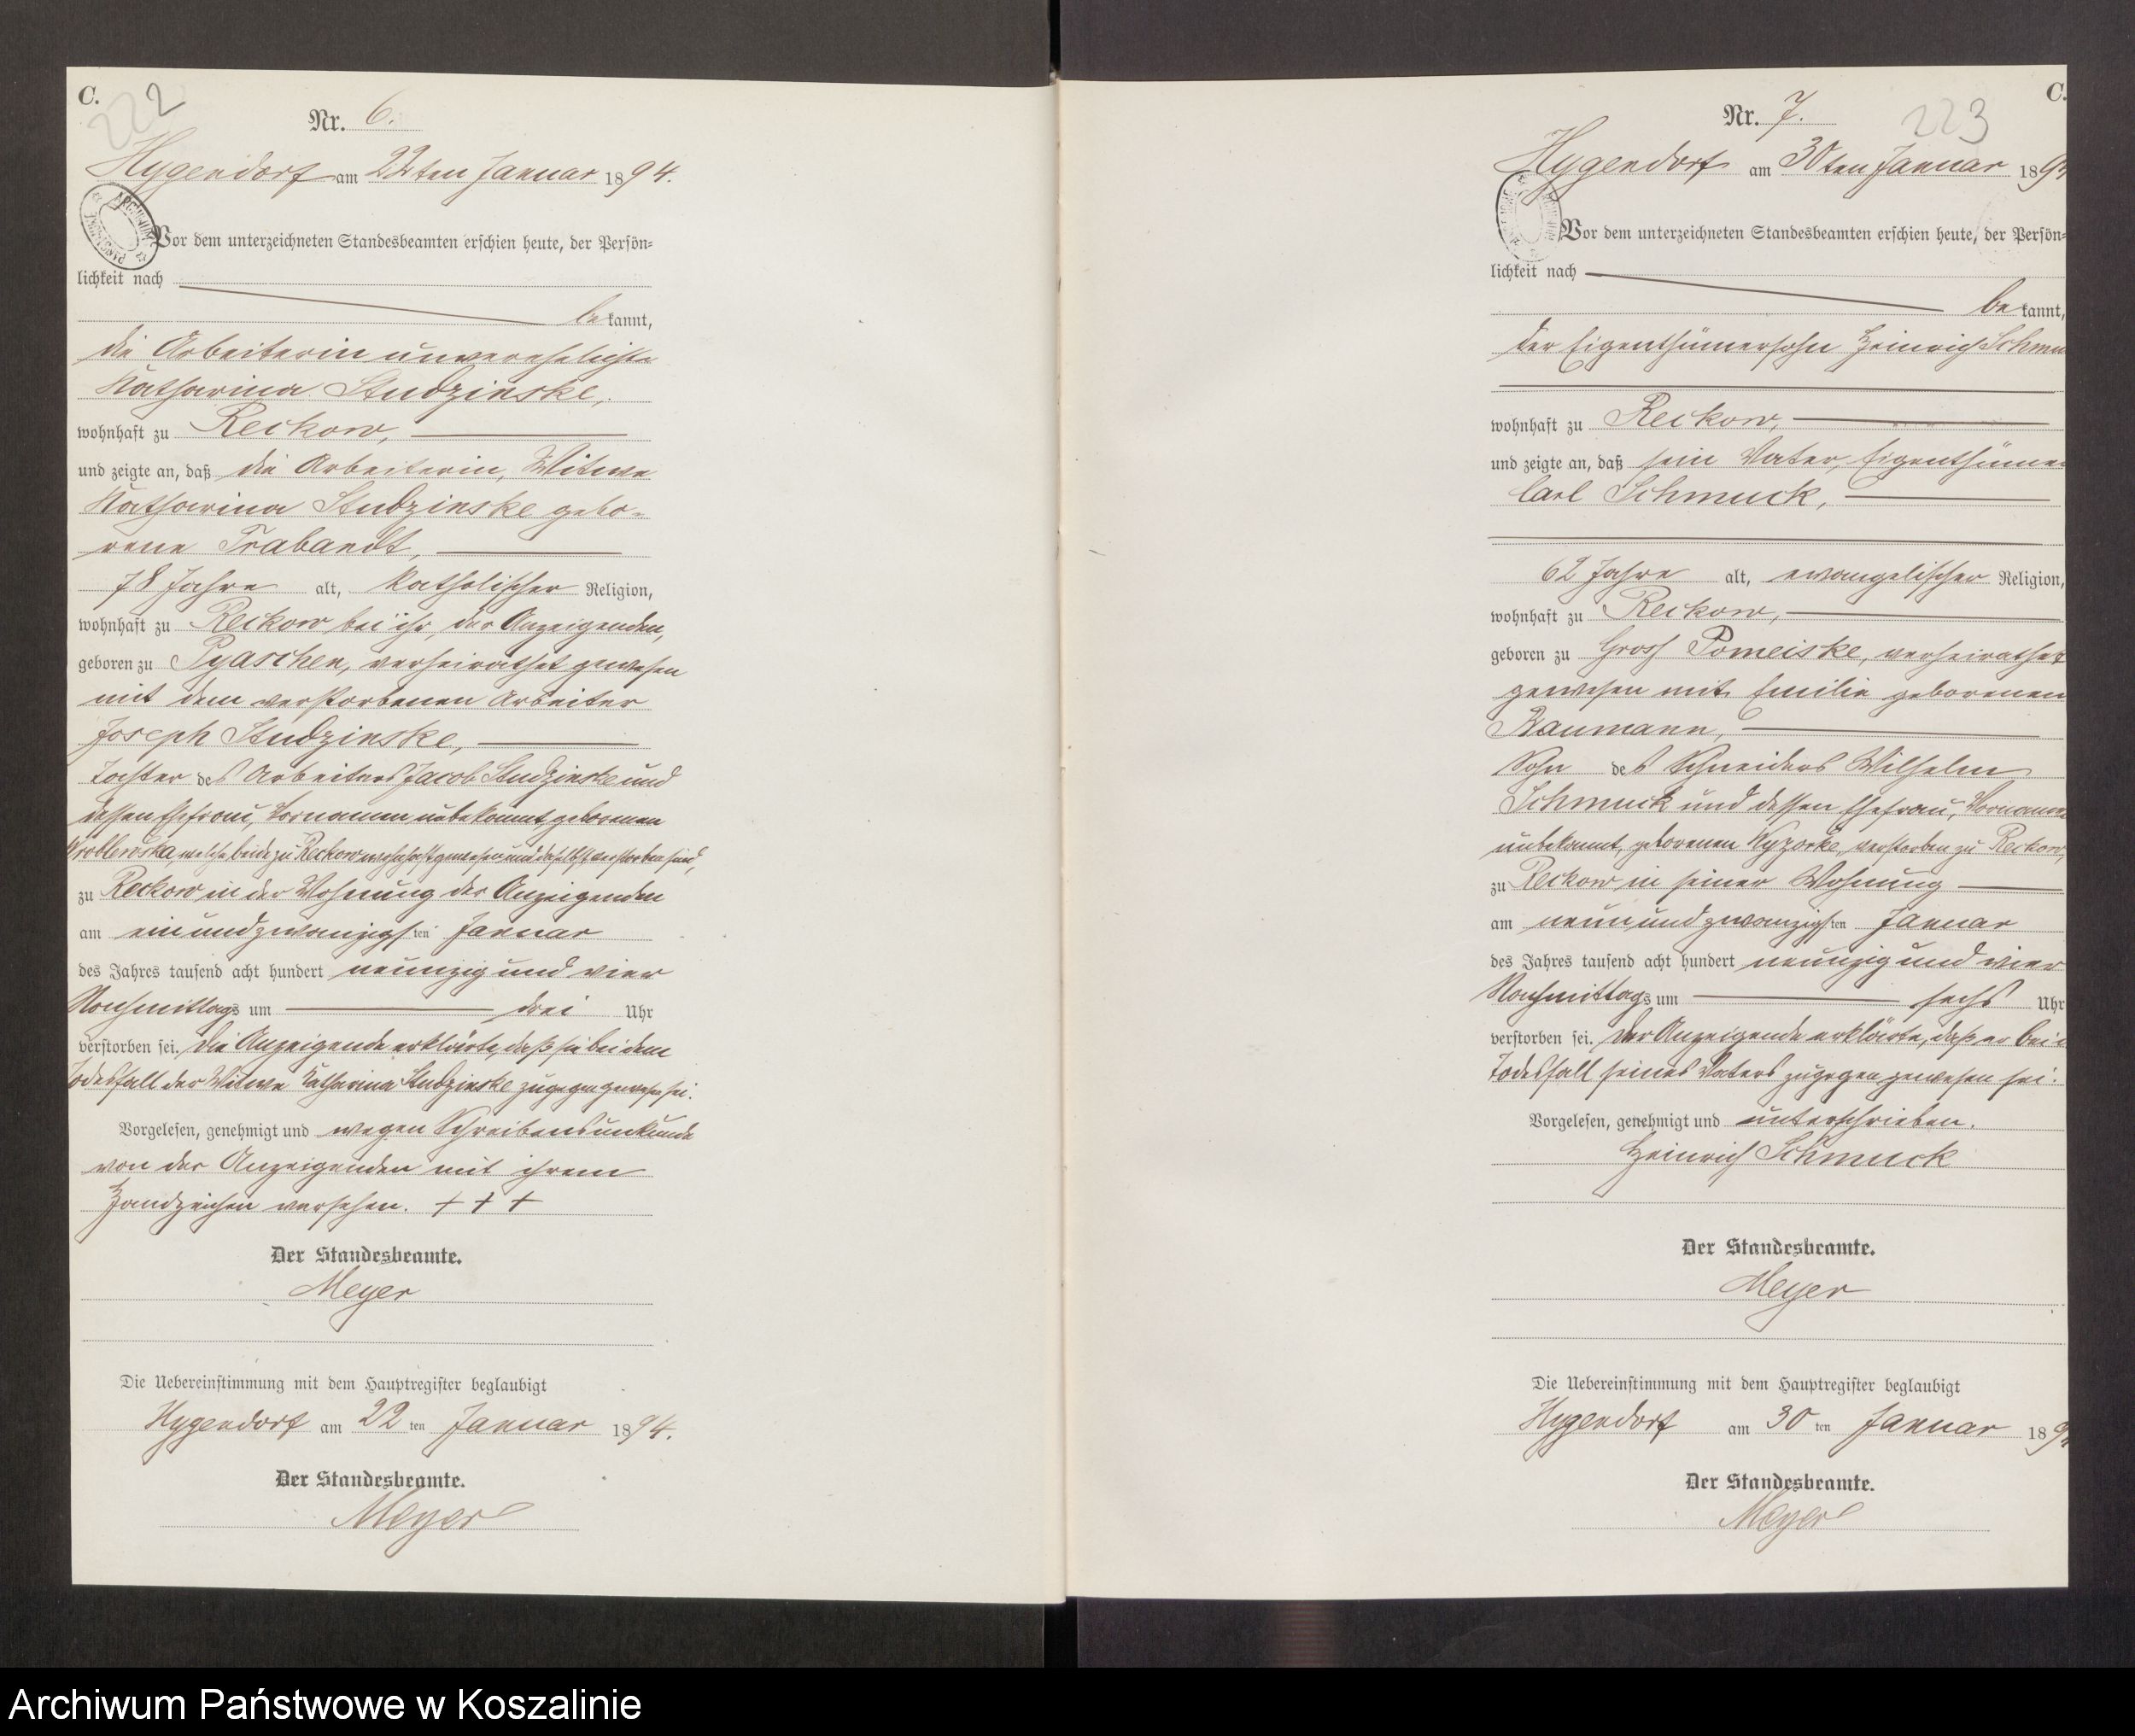 C.
222
Nr. 6.
Hygendorf am 22ten Januar 1894.
Vor dem unterzeichneten Standesbeamten erschien heute, der Persön=
lichkeit nach
bekannt,
die Arbeiterin unverehelichte
Katharina Studzinske,
wohnhaft zu Reckow,
und zeigte an, daß die Arbeiterin, Witwe
Katharina Studzinske gebo-
rene Trabandt,
78 Jahre alt, katholischer Religion,
wohnhaft zu Reckow bei ihr, der Anzeigenden,
geboren zu Pyaschen, verheirathet gewesen
mit dem verstorbenen Arbeiter
Joseph Studzinske,
Tochter des Arbeiters Jacob Studzinske und
dessen Ehefrau, Vornamen unbekannt, geborenen
Wroblewska, welche beide zu Reckow wohnhaft gewesen und daselbst verstorben sind,
zu Reckow in der Wohnung der Anzeigenden
am einundzwanzigsten Januar
des Jahres tausend acht hundert neunzig und vier
Nachmittags um drei Uhr
verstorben sei. Die Anzeigende erklärte, daß sie bei dem
Todesfall der Witwe Katharina Studzinske zugegen gewesen sei.
Vorgelesen, genehmigt und wegen Schreibensunkunde
von der Anzeigenden mit ihrem
Handzeichen versehen. + + +
Der Standesbeamte.
Meyer
Die Uebereinstimmung mit dem Hauptregister beglaubigt
Hygendorf am 22ten Januar 1894.
Der Standesbeamte.
Meyer
C.
223
Nr. 7.
Hygendorf am 30ten Januar 189
Vor dem unterzeichneten Standesbeamten erschien heute, der Persön=
lichkeit nach
bekannt,
der Eigenthümersohn Heinrich Schmu
wohnhaft zu Reckow,
und zeigte an, daß sein Vater, Eigenthümer
Carl Schmuck,
62 Jahre alt, evangelischer Religion,
wohnhaft zu Reckow,
geboren zu Gross Pomeiske, verheirathet
gewesen mit Emilie geborenen
Naumann,
Sohn des Schneiders Wilhelm
Schmuck und dessen Ehefrau, Vornamen
unbekannt, geborenen verstorben zu Reckow,
zu Reckow in seiner Wohnung
am neunundzwanzigsten Januar
des Jahres tausend acht hundert neunzig und vier
Nachmittags um sechs Uhr
verstorben sei. Der Anzeigende erklärte, daß er bei
Todesfall seines Vaters zugegen gewesen sei.
Vorgelesen, genehmigt und unterschrieben.
Heinrich Schmuck
Der Standesbeamte.
Meyer
Die Uebereinstimmung mit dem Hauptregister beglaubigt
Hygendorf am 30ten Januar 189
Der Standesbeamte.
Meyer
Archiwum Państwowe w Koszalinie